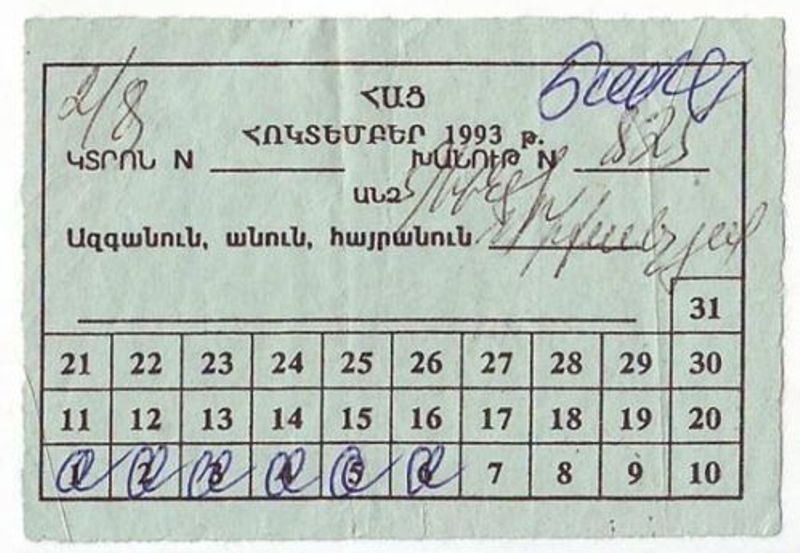 ՀԱՑ
ՀՈԿՏԵՄԲԵՐ 1993 թ.
ԿՏՐՈՆ N ԽԱՆՈՒԹ N 825
ԱՆՁ
Ազգանուն, անուն, հայրանուն
31
21 22 23 24 25 26 27 28 29 30
11 12 13 14 15 16 17 18 19 20
1 2 3 4 5 6 7 8 9 10